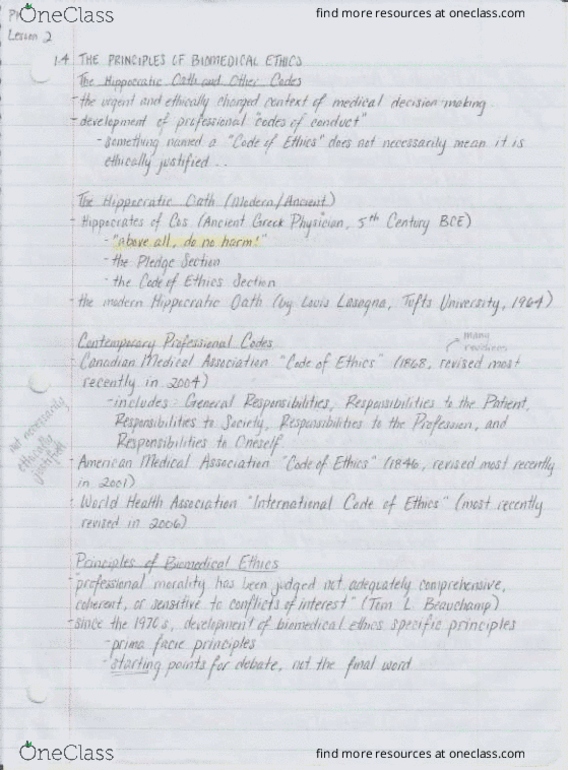 OneClass
find more resources at oneclass.com
Lesson 2
1.4 THE PRINCIPLES OF BIOMEDICAL ETHICS
The Hippocratic Oath and Other Codes
- the urgent and ethically charged context of medical decision making
- development of professional "codes of conduct"
- something named a "Code of Ethics" does not necessarily mean it is
ethically justified...
The Hippocratic Oath (Modern/Ancient)
- Hippocrates of Cos (Ancient Greek Physician, 5th Century BCE)
- "above all, do no harm!"
- the Pledge Section
- the Code of Ethics Section
- the modern Hippocratic Oath (by Louis Lasagna, Tufts University, 1964)
Contemporary Professional Codes
many
revisions
- Canadian Medical Association "Code of Ethics" (1868, revised most
recently in 2004)
- includes: General Responsibilities, Responsibilities to the Patient,
Responsibilities to Society, Responsibilities to the Profession, and
Responsibilities to Oneself
not necessarily
ethically
justified
- American Medical Association "Code of Ethics" (1846, revised most recently
in 2001)
- World Health Association "International Code of Ethics" (most recently
revised in 2006)
Principles of Biomedical Ethics
- "professional morality has been judged not adequately comprehensive,
coherent, or sensitive to conflicts of interest" (Tom L. Beauchamp)
- since the 1970s, development of biomedical ethics specific principles
- prima facie principles
- starting points for debate, not the final word
OneClass
find more resources at oneclass.com